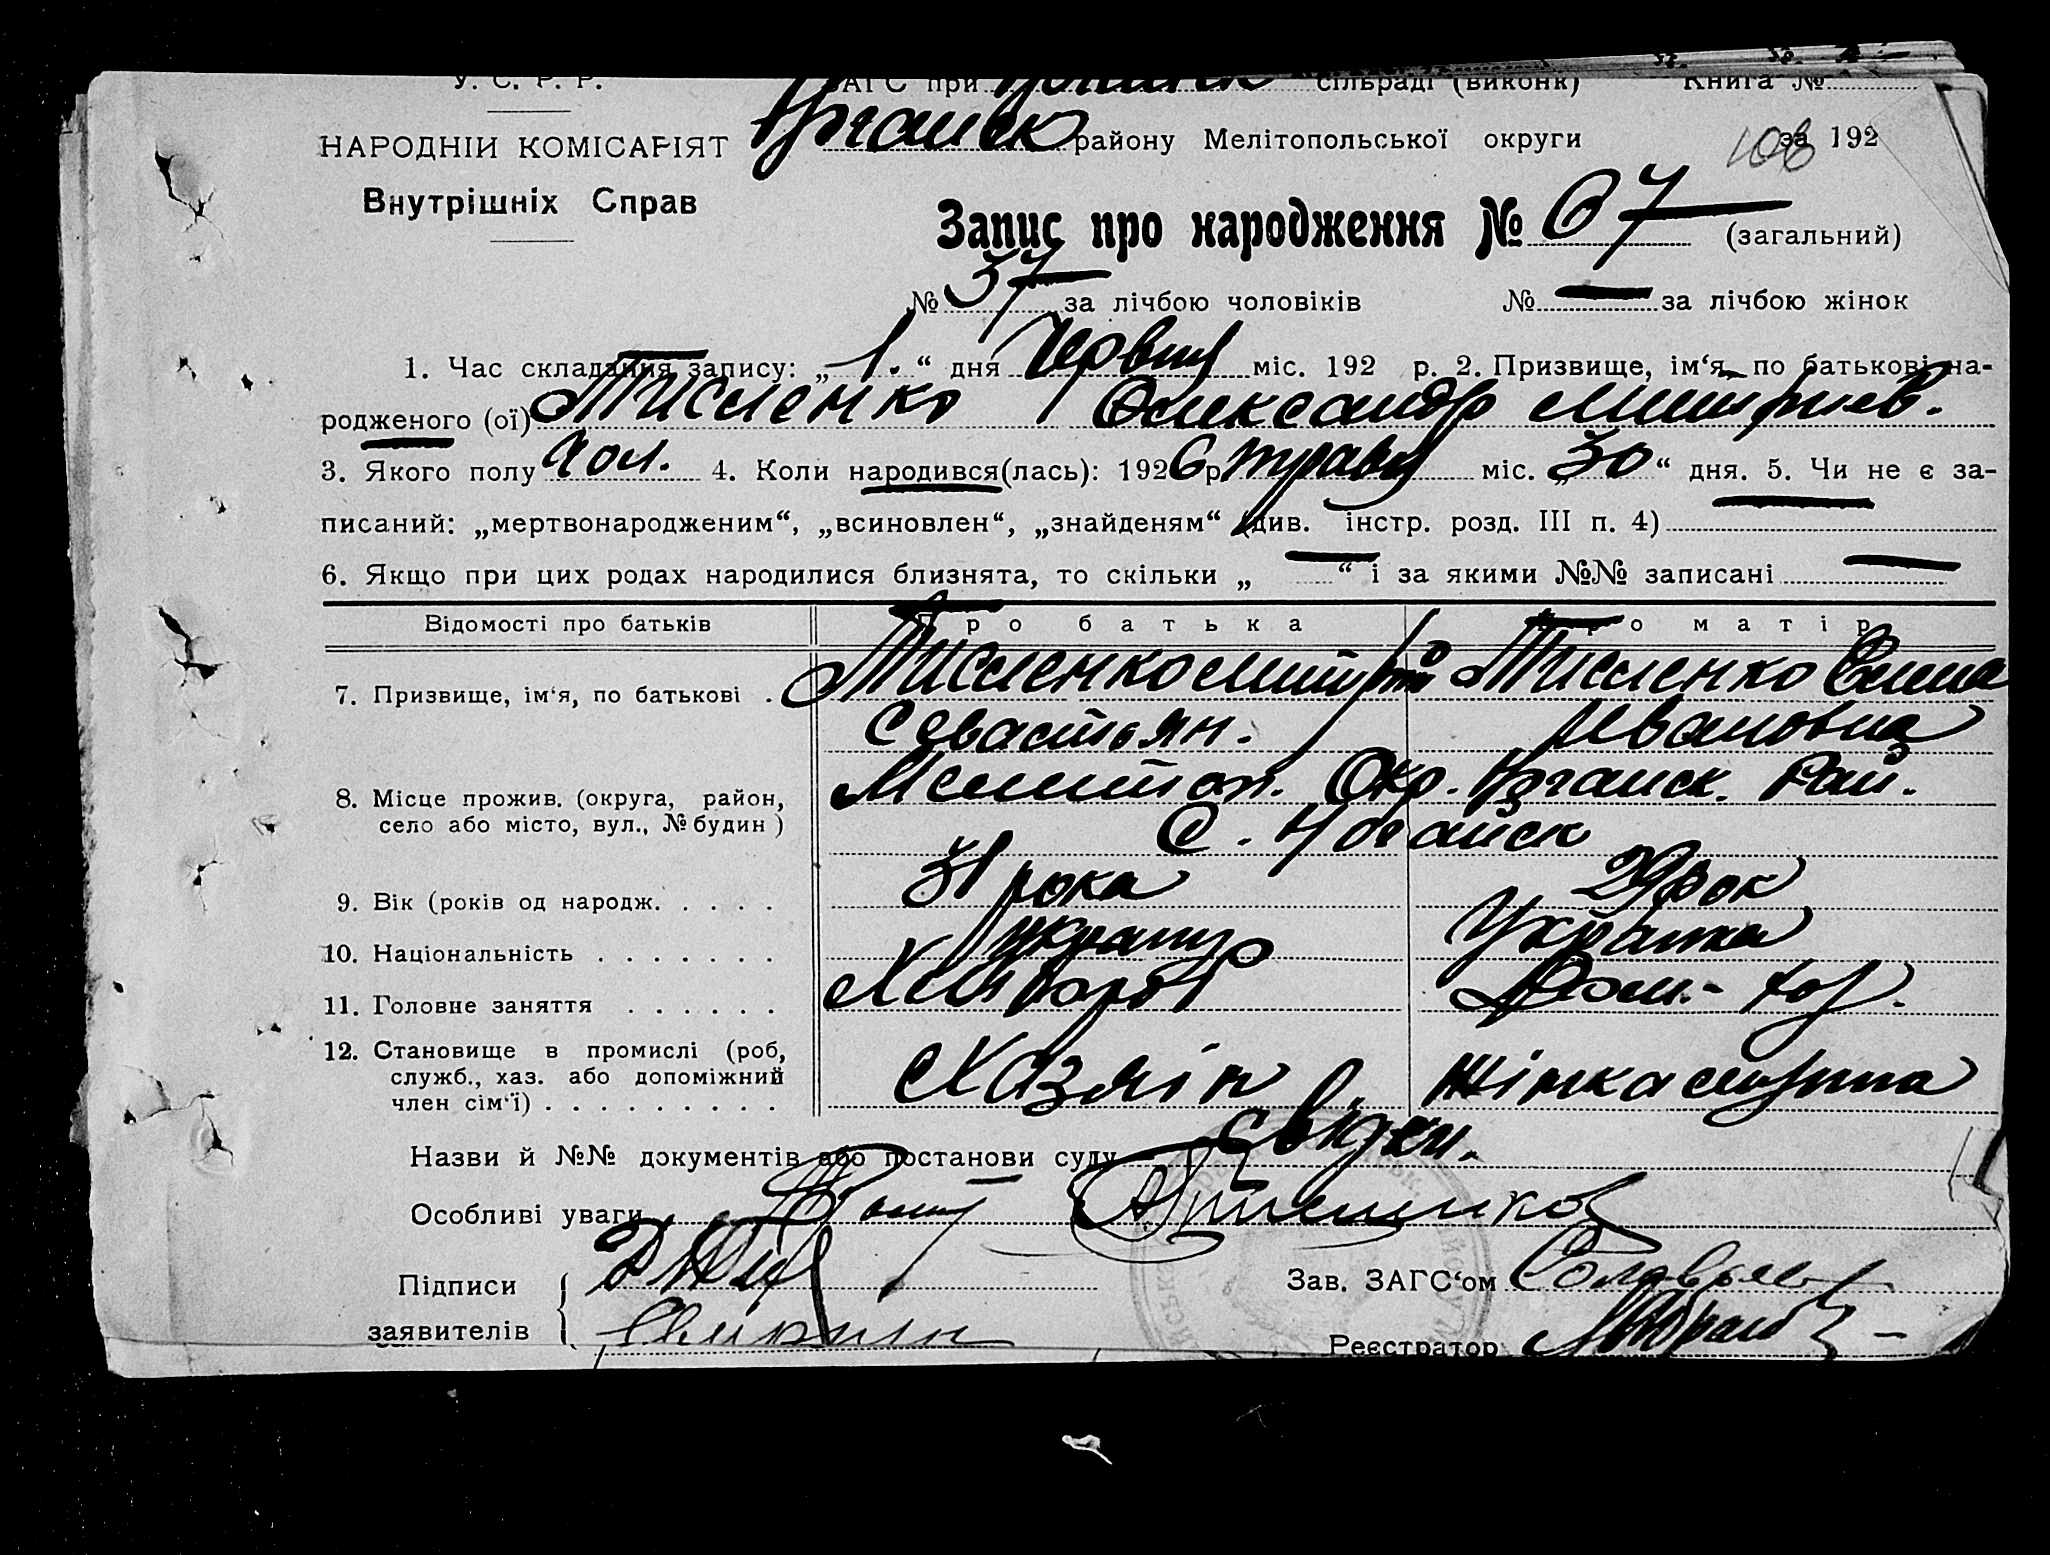 У. С. Р. Р. ЗАГС при сільраді (виконк) Книга №
НАРОДНІЙ КОМІСАРІЯТ району Мелітопольської округи за 192
106
Внутрішніх Справ
Запис про народження № 67 (загальний)
№ 37 за лічбою чоловіків № — за лічбою жінок
1. Час складання запису: „ 1. “ дня Червня міс. 192 р. 2. Призвище, ім‘я, по батькові на-
родженого (ої) Тисленко Олександр Митріев.
3. Якого полу чол. 4. Коли народився(лась): 1926 р. травня міс. „30“ дня. 5. Чи не є за-
писаний: „мертвонародженим“, „всиновлен“, „знайденям“ (див. інстр. розд. III п. 4) —
6. Якщо при цих родах народилися близнята, то скільки „ — “ і за якими №№ записані —
Відомості про батьків Про батька Про матір
7. Призвище, ім‘я, по батькові . Тисленко Митрій Тисленко
Севастьян. Ивановна
8. Місце прожив. (округа, район, Мелитоп. Окр. Рай.
село або місто, вул., № будин ) С. Ногайск
9. Вік (років од народж. . . . . 31 рока 29 рок
10. Національність . . . . . . . украинц Украінка
11. Головне заняття . . . . . . Хлібороб Дом.-гос.
12. Становище в промислі (роб,
служб., хаз. або допоміжний Хазяін Жінка
член сім‘ї) . . . . . . . . .
Назви й №№ документів або постанови суду Свідки.
Особливі уваги
Підписи Зав. ЗАГС‘ом
заявителів
Реєстратор